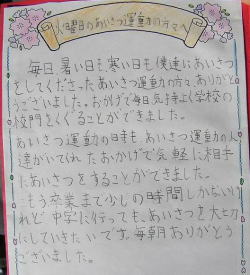 火曜日のあいさつ運動の方々へ
毎日、暑い日も、寒い日も僕達にあいさつ
をしてくださったあいさつ運動の方々、ありがと
うございました。おかげで毎日気持よく学校の
校門をくぐることができました。
あいさつ運動の日時も、あいさつ運動の人
達がいてくれたおかげで気軽に相手
にあいさつをすることができました。
もう卒業まで少しの時間しかないけ
れど中学に行っても、あいさつを大切
にしていきたいです。毎朝ありがとう
ございました。